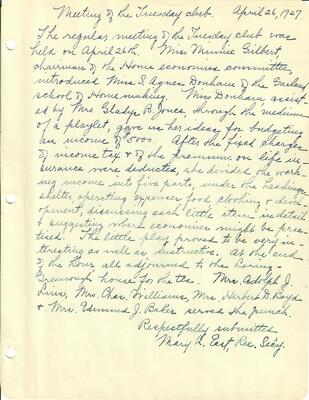 Meeting of the Tuesday club. April 26, 1927.
The regular meeting of the Tuesday club was
held on April 26th. Miss Minnie Gilbert,
chairman of the Home economics committee,
introduced Miss S. Agnes Donham of the Garland
school of Homemaking. Miss Donham assist-
ed by Mrs. Gladys B. Jones, through the medium
of a playlet, gave us her ideas for budgeting
an income of $5000. After the fixed charges
of income tax & of the premium on life in-
surance were deducted, she divided the work-
ing income into five parts, under the headings
shelter, operating expenses food, clothing & devel-
opment, discussing each little item in detail
& suggesting where economies might be prac-
tised. The little play proved to be very in-
teresting as well as instructive. At the end
of the hour all adjourned to the Loring-
Greenough house for the tea. Mrs. Adolph J.
Lins, Mrs. Chas. Williams, Mrs. Herbert D. Boyd
& Mrs. Edmund J. Baker served the punch.
Respectfully submitted
Mary L. East, Rec. Secy.